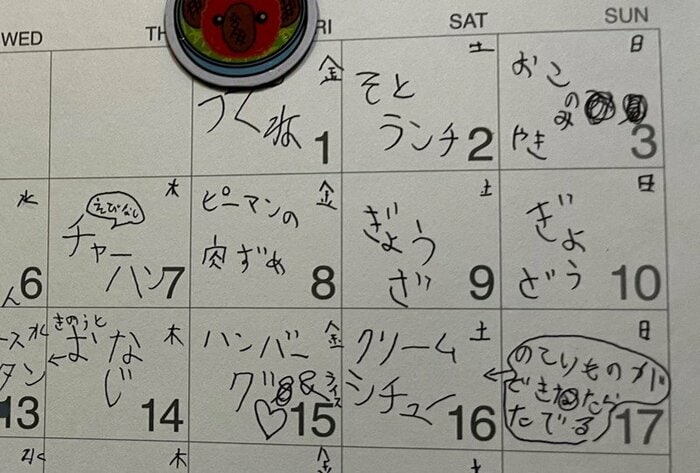 WED
SAT
SUN
金
つくね
1
土
そと
ランチ
2
日
おこ
のみ
やき
3
水
6
木
えびなし
チャー
ハン
7
金
ピーマンの
肉ずめ
8
土
ぎょう
ざ
9
日
ぎょ
どう
10
水
ース
タン
13
木
きのうと
おな
じ
14
金
ハンバー
グ
&
ライス
15
土
クリーム
シチュー
16
日
のこりものが
できたら
たべる
17
木
金
土